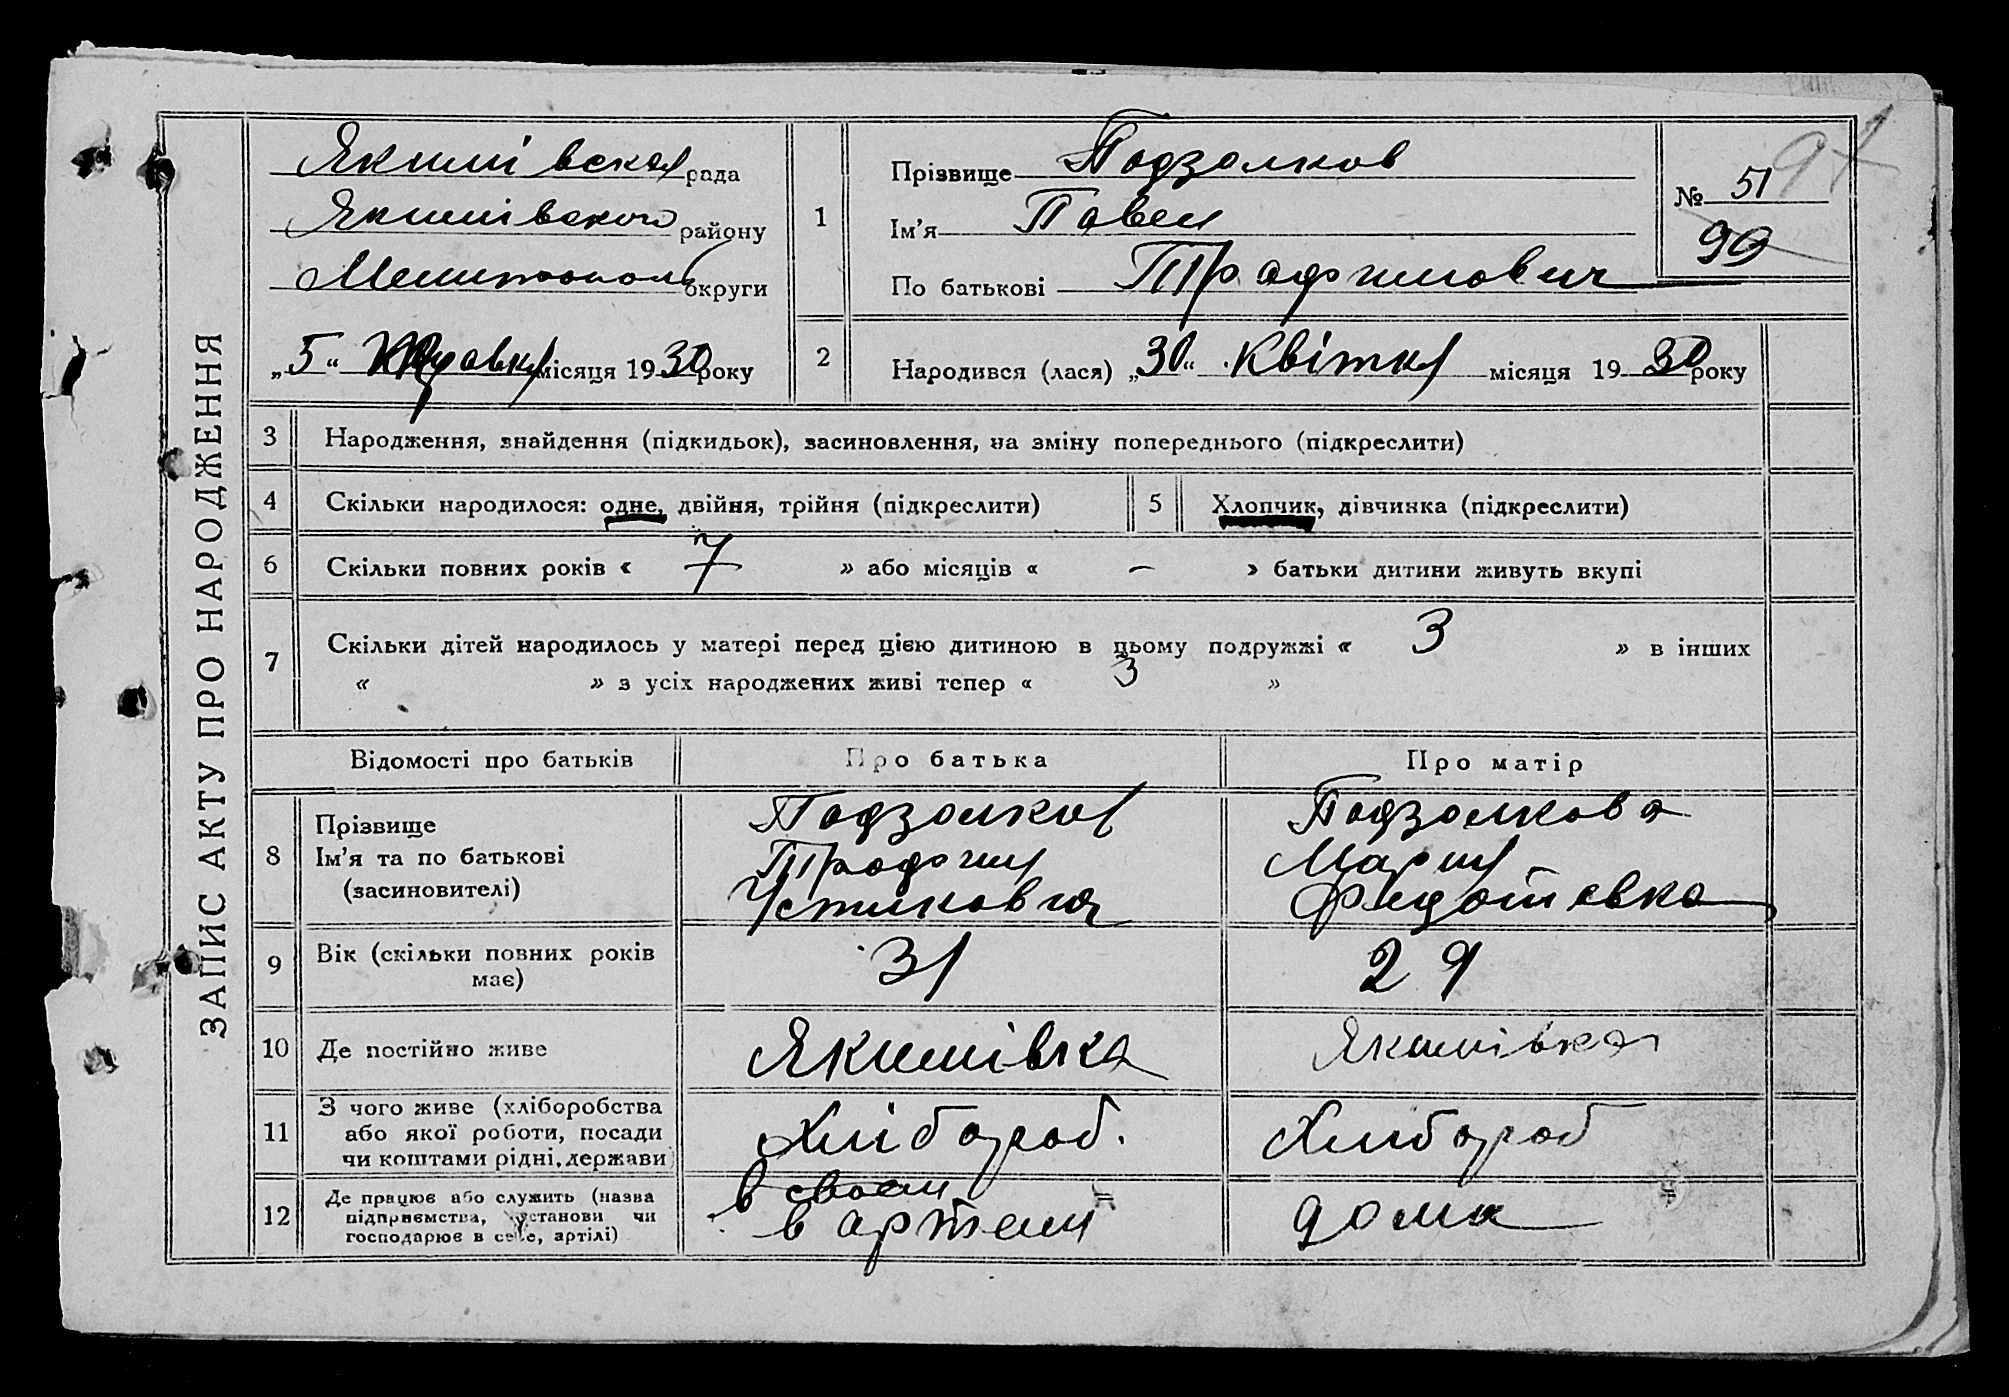 ЗАПИС АКТУ ПРО НАРОДЖЕННЯ
Якимівская рада
Якимівского району
Мелитополь округи
„5“ місяця 1930 року
1
Прізвище Подзолков
Ім'я Павел
По батькові Трофимович
№ 51
99
2
Народився (лася) „30“ Квітня місяця 1930 року
3 Народження, знайдення (підкидьок), засиновлення, на зміну попереднього (підкреслити)
4 Скільки народилося: одне, двійня, трійня (підкреслити)
5 Хлопчик, дівчинка (підкреслити)
6 Скільки повних років « 7 » або місяців « – » батьки дитини живуть вкупі
7 Скільки дітей народилось у матері перед цією дитиною в цьому подружжі « 3 » в інших
« » з усіх народжених живі тепер « 3 »
Відомості про батьків
Про батька
Про матір
8 Прізвище
Ім'я та по батькові
(засиновителі)
Подзолков
Трофим
Подзолкова
Мария
9 Вік (скільки повних років
має)
31
29
10 Де постійно живе
Якимівка
Якимівка
11 З чого живе (хліборобства
або якої роботи, посади
чи коштами рідні, держави)
Хлібороб.
Хлибороб
12 Де працює або служить (назва
підприємства, установи чи
господарює в селе, артілі)
в своем
в артели
дома